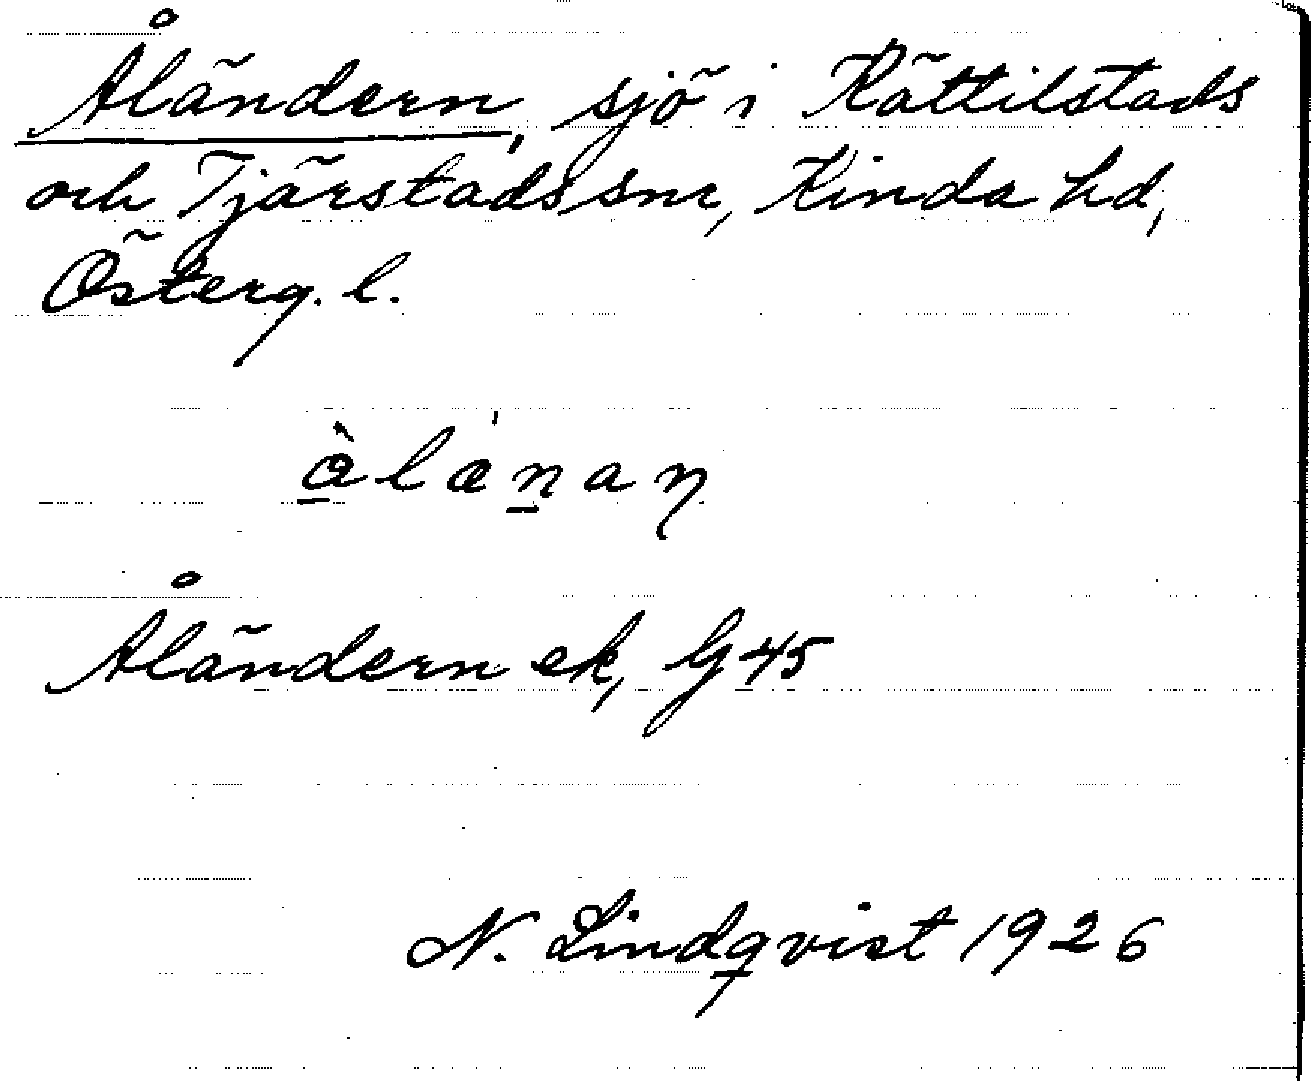 Åländern, sjö i Kättilstads
och Tjärstads snr, Kinda hd,
Österg. l.
Åländern ek, G 45
N. Lindqvist 1926